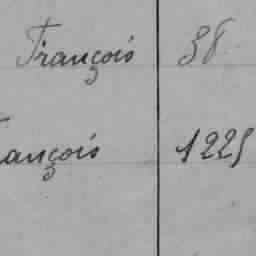 François 38
ançois 1225